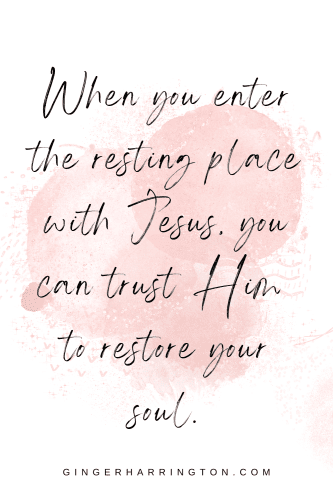 When you enter
the resting place
with Jesus, you
can trust Him
to restore your
soul.
GINGERHARRINGTON.COM